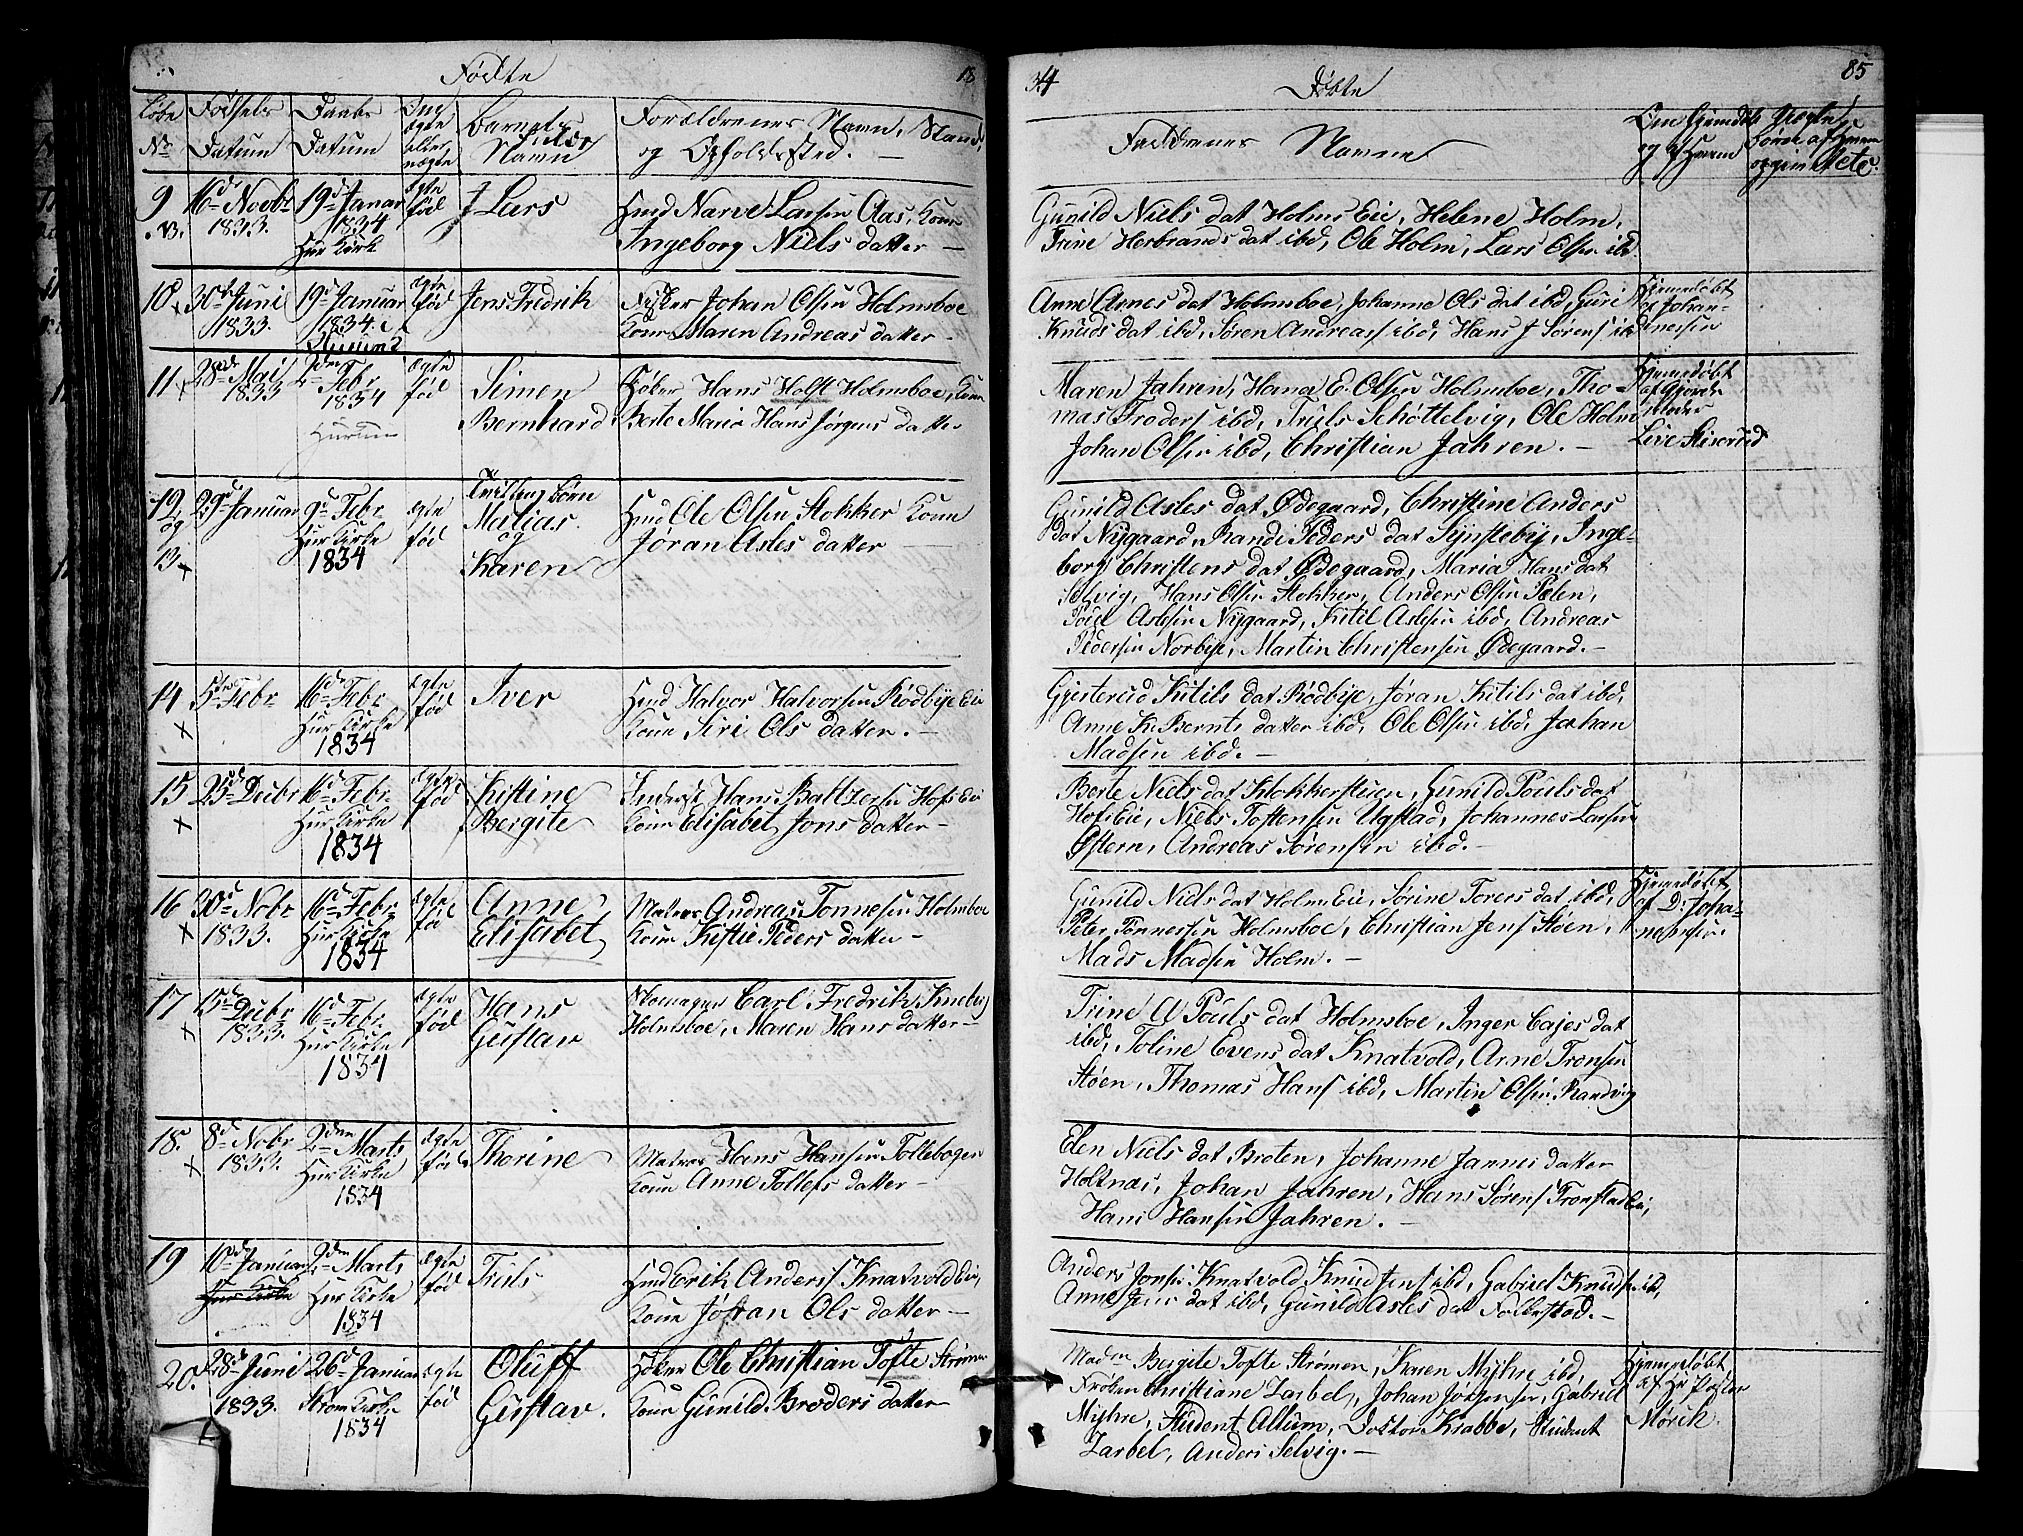 Födte 18
34 Döbte 85
Löbe No
Födsels Datum
Daabs Datum
Om ægte eller uægte
Barnets fulde Navn
Forældrenes Navn, Stand, og Opholdssted. —
Faddrenes Navne
Om hjemdöbt og af hvem
9 16d Novbr 1833. 19d Januar 1834 Hur Kirke ægte föd Lars
Hmd Narve Larsen Aas, Kone
Ingeborg Niels datter —
Gunild Niels dat Holms Eie, Helene Holm,
Trine Herbrands dat ibd, Ole Holm, Lars Olsen ibd
10 30te Juni 1833. 19d Januar 1834 ægte föd Jens Fredrik
Johan Olsen Holmsboe
Kone Maren Andreas datter —
Anne Asnes dat Holmsboe, Johanne Ols dat ibd, Guri
Knuds dat ibd, Sören Andreass ibd, Hans J Sörens ibd
Hjemedöbt af Johannesen
11 28de Mai 1833 2den Febr 1834 Hurum ægte föd Simen Bernhard
Höker Hans Holst Holmsboe, Kone
Berte Maria Hans Jörgens datter
Maren Jahren, Hana E. Olsen Holmsboe, Tho-
mas Froders ibd, Truls Schöttelvig, Ole Holm
Johan Olsen ibd, Christian Jahren. —
Hjemedöbt af Gjordemoder
12 og 13 29d Januar 9d Febr Hur Kirke 1834 ægte föd Tvilling börn Matias og Karen
Hmd Ole Olsen Stokker Kone
Jöran Asles datter —
Gunild Asles dat Ødegaard, Christine Anders
dat Nygaard, Randi Peders dat Synsteby, Inge-
borg Christens dat Ødegaard, Maria Hans dat
Selvig, Hans Olsen Stokker, Anders Olsen Pelen,
Poul Aslesen Nygaard, Kitil Aslesen ibd, Andreas
Pedersen Norbye, Martin Christensen Ødegaard. —
14 5te Febr 16d Febr Hur Kirke 1834 ægte föd Iver
Hmd Halvor Halvorsen Rödbye Eie
Kone Siri Ols datter. —
Gjertrud Kitils dat Rödbye, Jöran Kitils dat ibd,
Anne K. Bernts datter ibd, Ole Olsen ibd, Johan
Madsen ibd. —
15 25d Decbr 16d Febr Hur Kirke 1834 ægte föd Kistine Bergite
Inderst Hans Baltzersen Hofs Eie
Kone Elisabet Jons datter —
Berte Niels dat Klokkerstuen, Gunild Pouls dat
Hofs Eie, Niels Toftensen Ugstad, Johannes Larsen
Østern, Andreas Sörensen ibd. —
16 30d Nobr 1833. 16d Febr Hur Kirke 1834 ægte föd Anne Elisabet
Matros Andreas Tonnesen Holmsboe
Kone Kistie Peders datter —
Gunild Niels dat Holms Eie, Sörine Torers dat ibd,
Peter Tönnesen Holmsboe, Christian Jens Stöen,
Mads Madsen Holm. —
Hjemedöbt af D: Johanesen.
17 15d Decbr 1833. 16d Febr Hur Kirke 1834 ægte föd Hans Gustav
Skomager Carl Fredrik Kneby
Holmsboe, Maren Hans datter —
Trine A Pouls dat Holmsboe, Inger Cajes dat
ibd, Toline Evens dat Knatvold, Arne Tronsen
Stöen, Thomas Hans ibd, Martin Olsen Randvig
18. 8d Nobr 1833. 2den Marts Hur Kirke 1834 ægte föd Thorine
Matros Hans Hansen Tollebogen
Kone Anne Tollefs datter —
Elen Niels dat Braten, Johanne Jannes datter
Holtnas, Johan Jahren, Hans Sörens Tronstad Eie,
Hans Hansen Jahren. —
19 10d Januar 2den Marts Hur Kirke 1834 ægte föd Truls
Hmd Erik Anders Knatvold Eie,
Kone Jöran Ols datter —
Anders Jonsen Knatvold Knud Jens ibd, Gabriel Knudsen ibd,
Anne Jens dat ibd, Gunild Asles dat Folkestad. —
20. 28de Juni 1833. 26d Januar Ström Kirke 1834 ægte föd Oluff Gustav.
Höker Ole Christian Tofte Strömen
Kone Gunild Broders datter
Madm Bergite Tofte Strömen, Karen Myhre ibd,
Fröken Christiane Zarbel, Johan Jörgensen, Gabriel
Myhre, Student Allum, Doktor Krabbe, Student
Zarbel, Anders Selvig. —
Hjemedöbt af Hr Pastor Mörch.